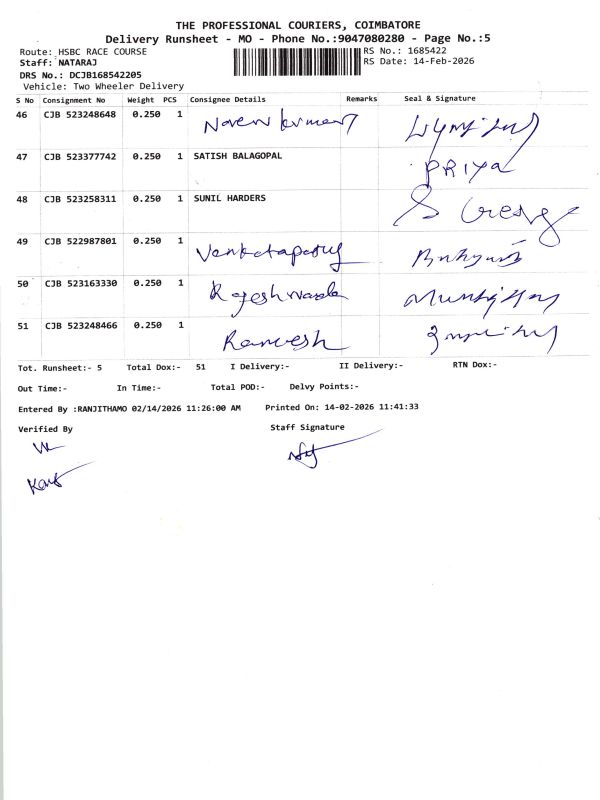 THE PROFESSIONAL COURIERS, COIMBATORE
Delivery Runsheet - MO - Phone No.:9047080280 - Page No.:5
Route: HSBC RACE COURSE RS No.: 1685422
Staff: NATARAJ RS Date: 14-Feb-2026
DRS No.: DCJB168542205
Vehicle: Two Wheeler Delivery
S No Consignment No Weight PCS Consignee Details Remarks Seal & Signature
46 CJB 523248648 0.250 1 Naveen kumar
47 CJB 523377742 0.250 1 SATISH BALAGOPAL PRIYA
48 CJB 523258311 0.250 1 SUNIL HARDERS
49 CJB 522987801 0.250 1
50 CJB 523163330 0.250 1
51 CJB 523248466 0.250 1 Ramesh
Tot. Runsheet:- 5 Total Dox:- 51 I Delivery:- II Delivery:- RTN Dox:-
Out Time:- In Time:- Total POD:- Delvy Points:-
Entered By :RANJITHAMO 02/14/2026 11:26:00 AM Printed On: 14-02-2026 11:41:33
Verified By Staff Signature